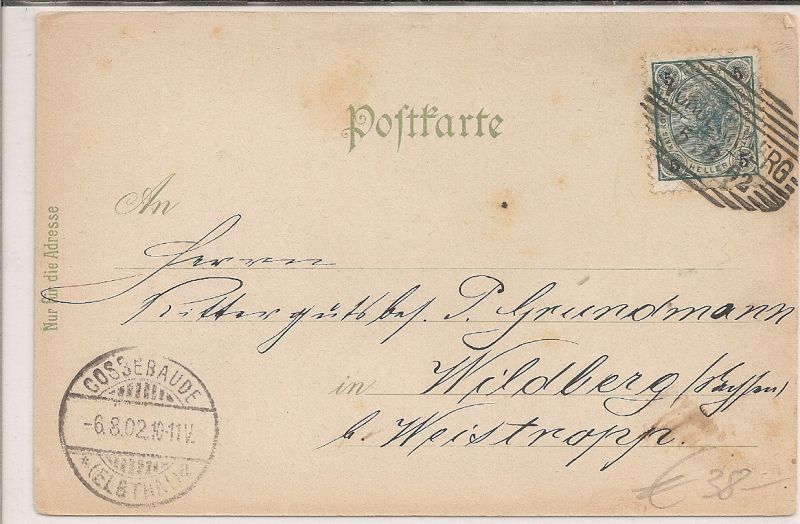 Postkarte
5 5
HELLER
ERG
02
An
Nur für die Adresse
Herrn
Rittergutsbes. P. Grundmann
in Wildberg (Sachsen)
b. Weistropp.
COSSEBAUDE
-6.8.02.10-11V.
* (ELBTHAL)
€ 38-